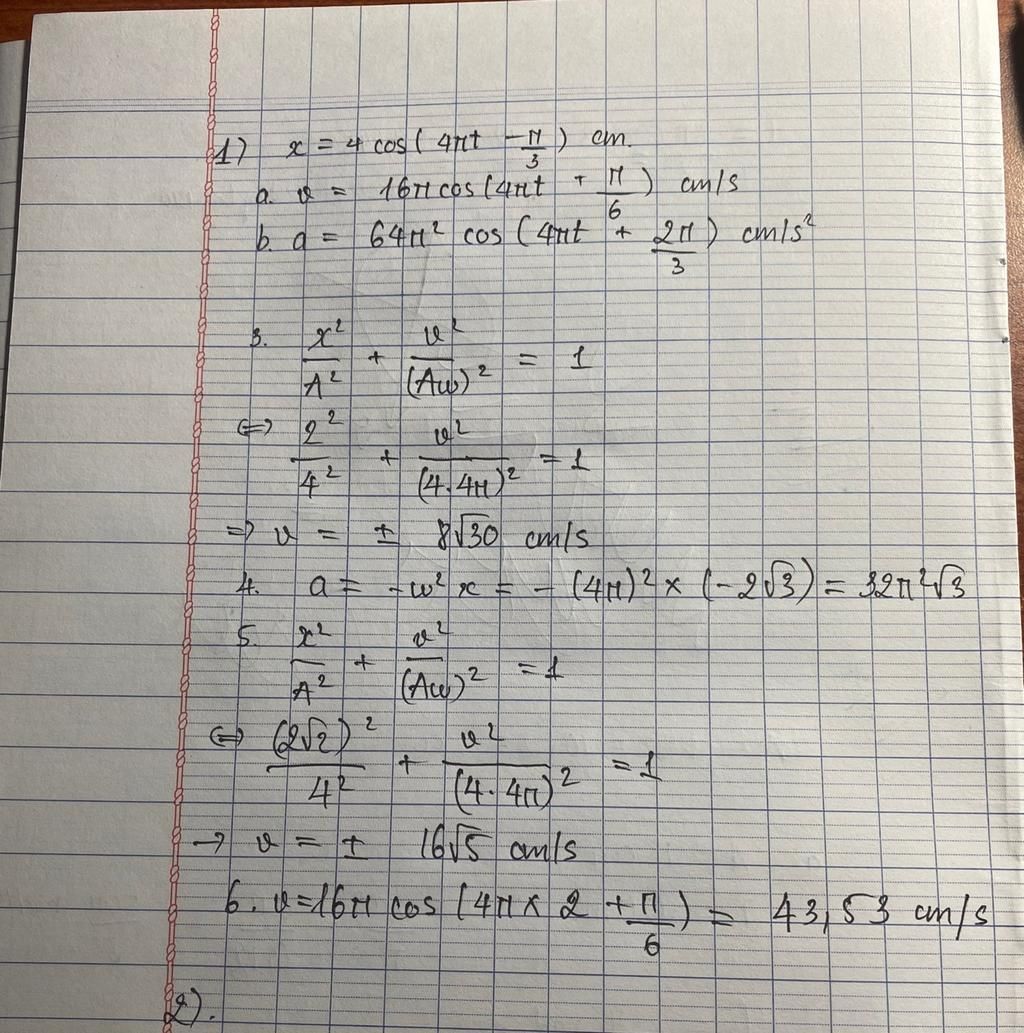 1) x = 4 cos(4πt - π/3) cm.
a. v = 16π cos(4πt + π/6) cm/s
b. a = 64π² cos(4πt + 2π/3) cm/s²
3. x²/A² + v²/(Aω)² = 1
⇔ 2²/4² + v²/(4.4π)² = 1
=> v = ± 8√30 cm/s
4. a = -ω² x = - (4π)² × (-2√3) = 32π²√3
5. x²/A² + v²/(Aω)² = 1
⇔ (2√2)²/4² + v²/(4.4π)² = 1
→ v = ± 16√5 cm/s
6. v=16π cos (4π × 2 + π/6) = 43,53 cm/s
2).